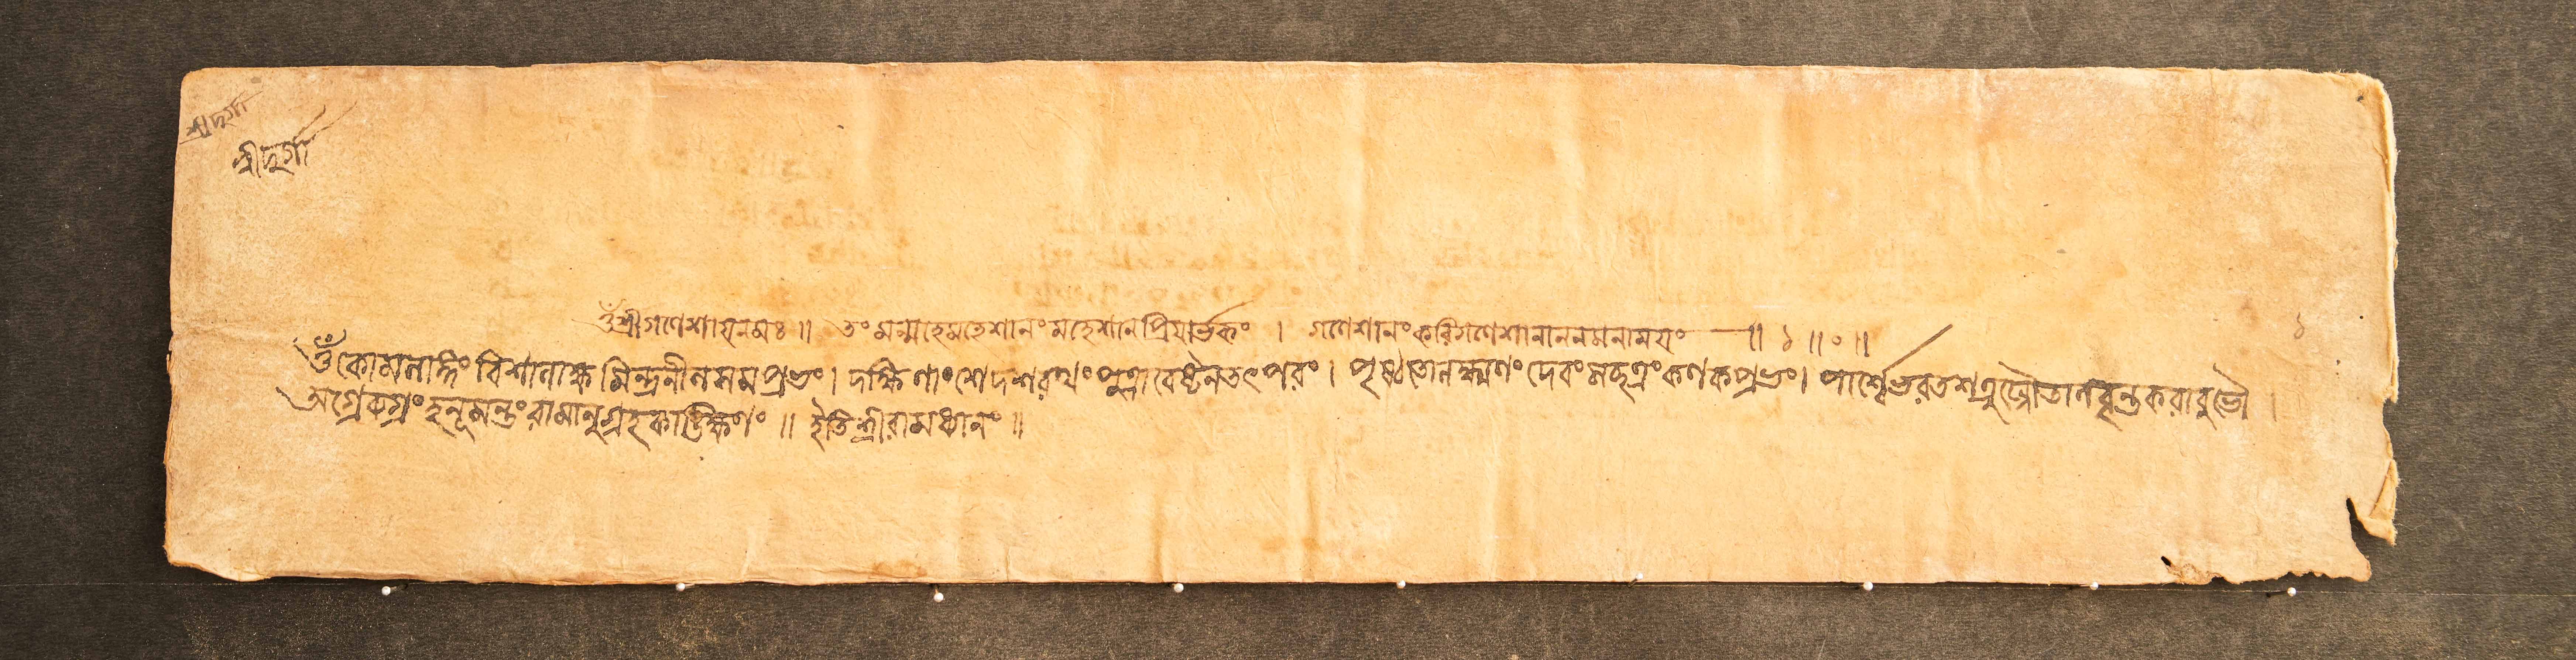 শ্রীদুর্গা
শ্রীদুর্গা
ওঁ শ্রীগণেশায়নমঃ ॥ তং মন্মহেমহেশানং মহেশানপ্রিয়ার্ভকং । গণেশানংকরিগণেশানাননমনাময়ং ॥ ১ ॥ ० ॥
১
ওঁ কোমলাঙ্গং বিশালাক্ষমিন্দ্রনীলসমপ্রভং । দক্ষিণাংশেদশরথং পুত্রাবেষ্টনতৎপরং । পৃষ্ঠতোলক্ষ্মণং দেবং সছত্রং কণকপ্রভং । পার্শ্বেভরতশত্রুঘ্নৌতালবৃন্তকরাবুভৌ ।
অগ্রেব্যগ্রং হনূমন্তং রামানুগ্রহকাঙ্ক্ষিণং ॥ ইতিশ্রীরামধ্যানং ॥